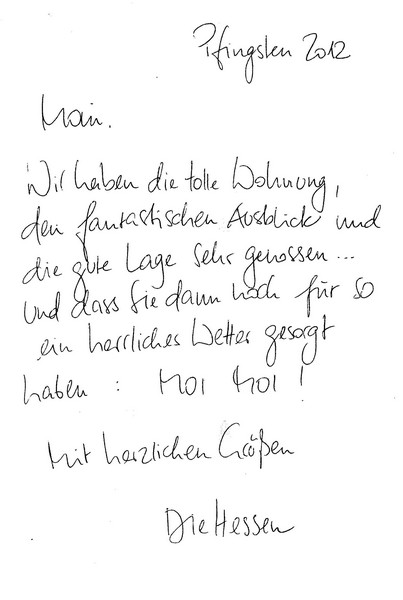 Pfingsten 2012
Moin.
Wir haben die tolle Wohnung,
den fantastischen Ausblick und
die gute Lage sehr genossen...
Und dass Sie dann noch für so
ein herrliches Wetter gesorgt
haben : MOI MOI !
Mit herzlichen Grüßen
Die Hessen